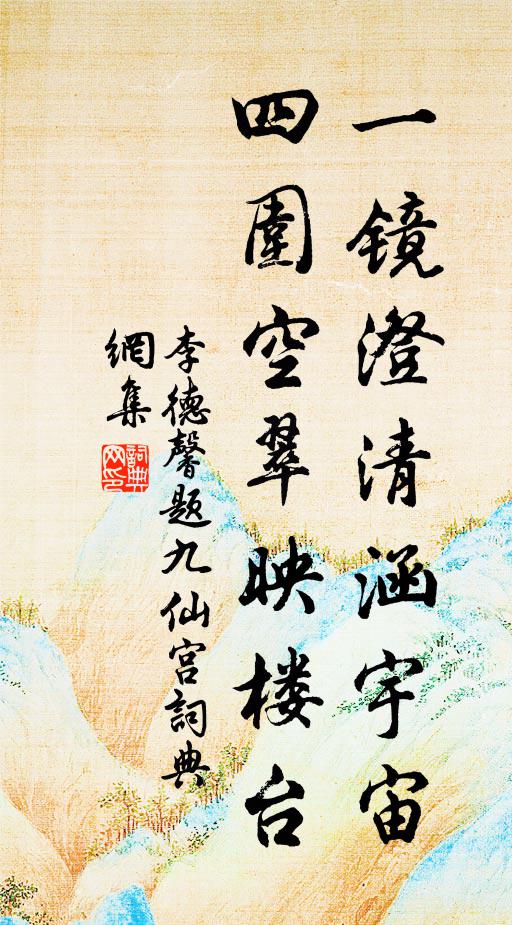 一镜澄清涵宇宙
四圍空翠映楼台
李德馨题九仙宫詞典
網集
詞典网印